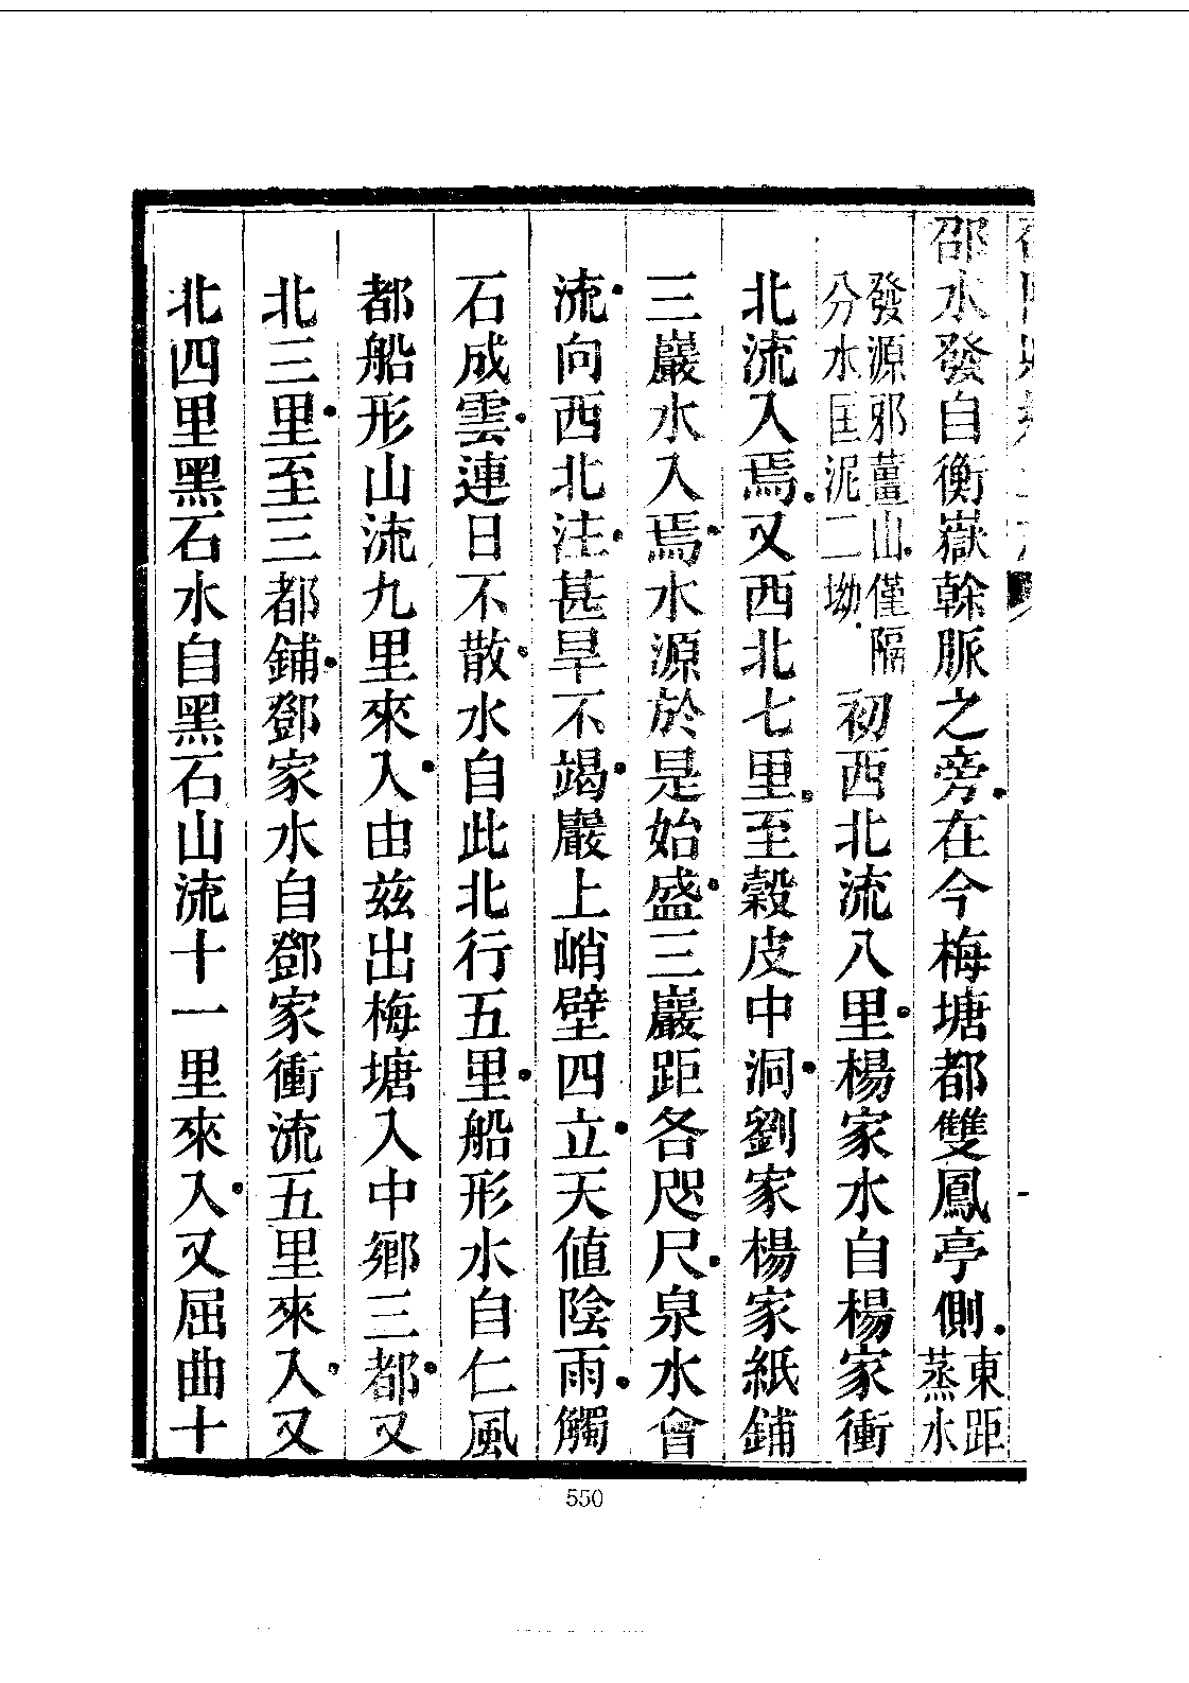 邵水發自衡嶽榦脈之旁在今梅塘都雙鳳亭側東距蒸水
發源邪薑山僅隔分水匡泥二坳初西北流八里楊家水自楊家衝
北流入焉又西北七里至穀皮中洞劉家楊家紙鋪
三巖水入焉水源於是始盛三巖距各咫尺泉水會
流向西北注甚旱不竭巖上峭壁四立天値陰雨觸
石成雲連日不散水自此北行五里船形水自仁風
都船形山流九里來入由茲出梅塘入中鄉三都又
北三里至三都鋪鄧家水自鄧家衝流五里來入又
北四里黑石水自黑石山流十一里來入又屈曲十
550